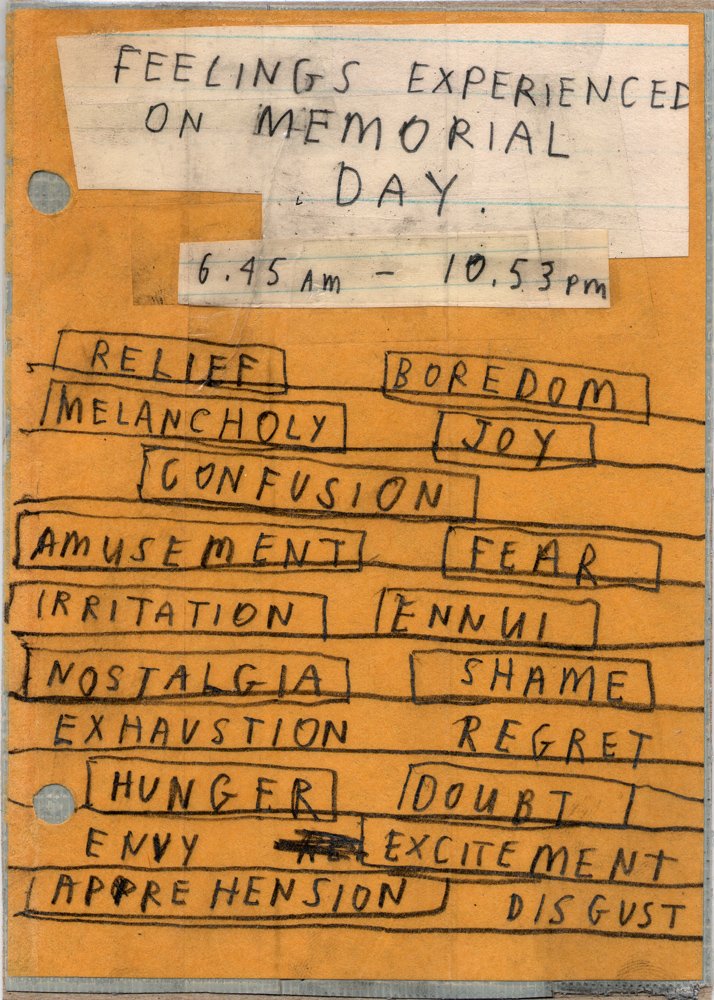 FEELINGS EXPERIENCED
ON MEMORIAL
DAY.
6.45 AM - 10.53 PM
RELIEF BOREDOM
MELANCHOLY JOY
CONFUSION
AMUSEMENT FEAR
IRRITATION ENNUI
NOSTALGIA SHAME
EXHAUSTION REGRET
HUNGER DOUBT
ENVY EXCITEMENT
APPREHENSION DISGUST